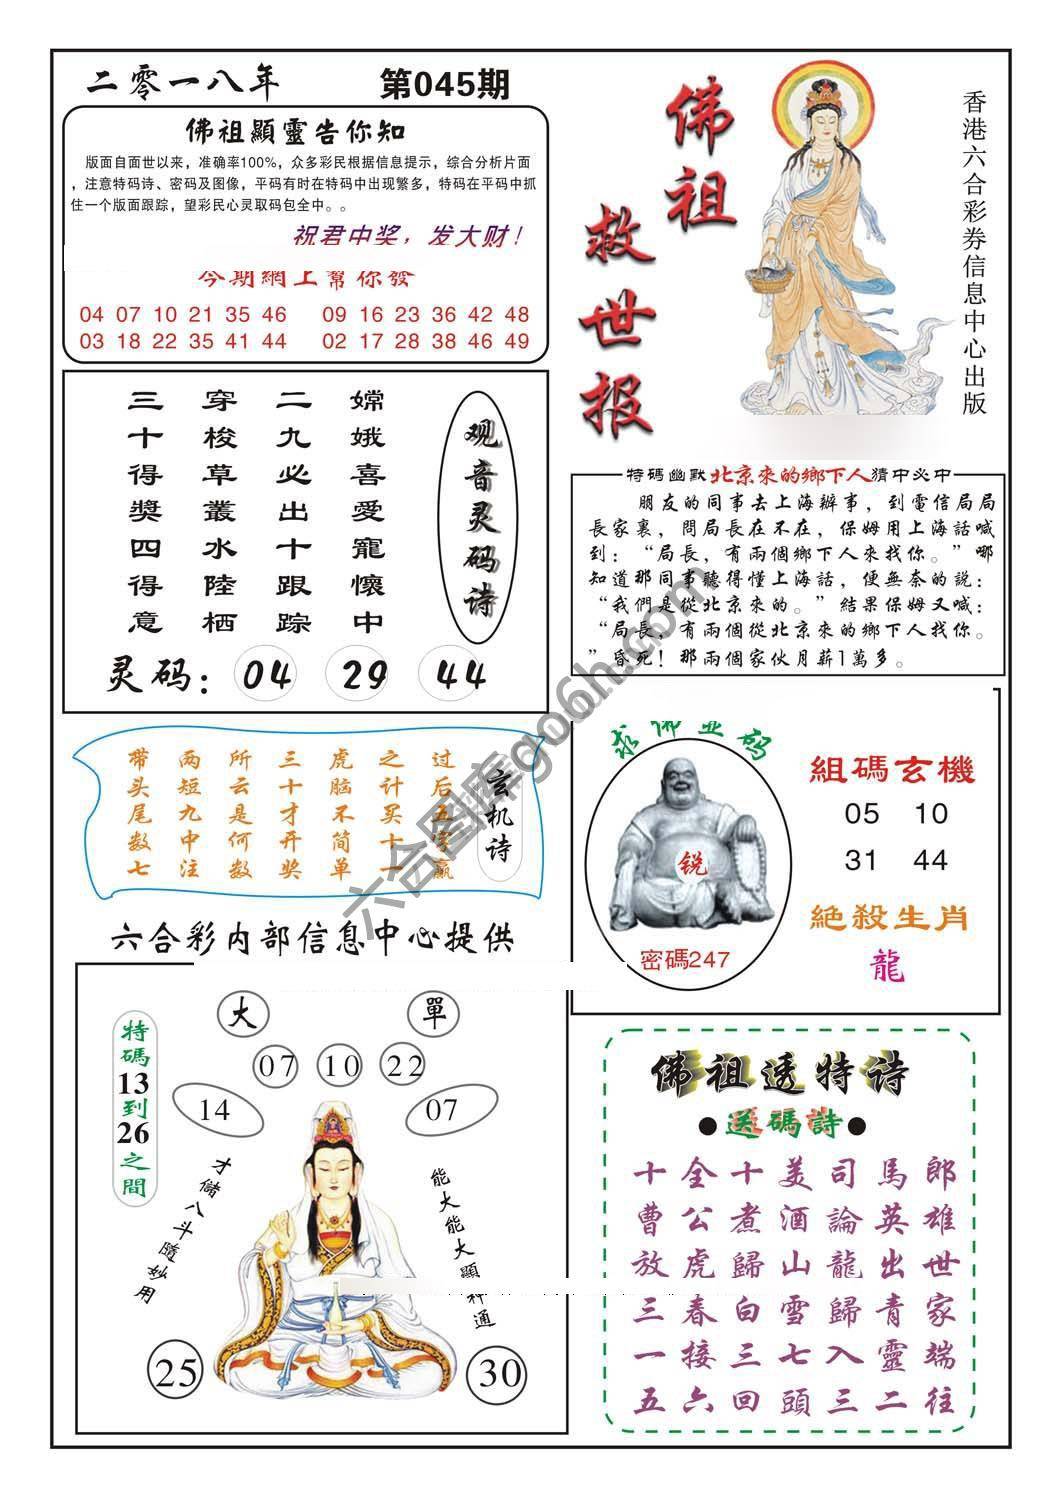 二零一八年 第045期
佛祖顯靈告你知
版面自面世以来，准确率100%，众多彩民根据信息提示，综合分析片面
，注意特码诗、密码及图像，平码有时在特码中出现繁多，特码在平码中抓
住一个版面跟踪，望彩民心灵取码包全中。。
祝君中奖，发大财！
今期網上幫你發
04 07 10 21 35 46 09 16 23 36 42 48
03 18 22 35 41 44 02 17 28 38 46 49
佛祖
救世报
香港六合彩券信息中心出版
观音灵码诗
嫦娥喜愛寵懷中
二九必出十跟踪
穿梭草叢水陸栖
三十得獎四得意
灵码：04 29 44
特碼幽默北京來的鄉下人猜中必中
朋友的同事去上海辦事，到電信局局
長家裏，問局長在不在，保姆用上海話喊
到：“局長，有兩個鄉下人來找你。”哪
知道那同事聽得懂上海話，便無奈的說：
“我們是從北京來的。”結果保姆又喊：
“局長，有兩個從北京來的鄉下人找你。
”昏死！那兩個家伙月薪1萬多。
玄机诗
过后五字赢
之计买十一
虎脑不简单
三十才开奖
所云是何数
两短九中注
带头尾数七
求佛显码
锐
密碼247
組碼玄機
05 10
31 44
絕殺生肖
龍
六合彩内部信息中心提供
大 單
07 10 22
14 07
特碼13到26之間
才儲八斗隨妙用
能大能大顯神通
25 30
佛祖透特诗
●送碼詩●
十全十美司馬郎
曹公煮酒論英雄
放虎歸山龍出世
三春白雪歸青家
一接三七入靈端
五六回頭三二往
六合图库go6h.com